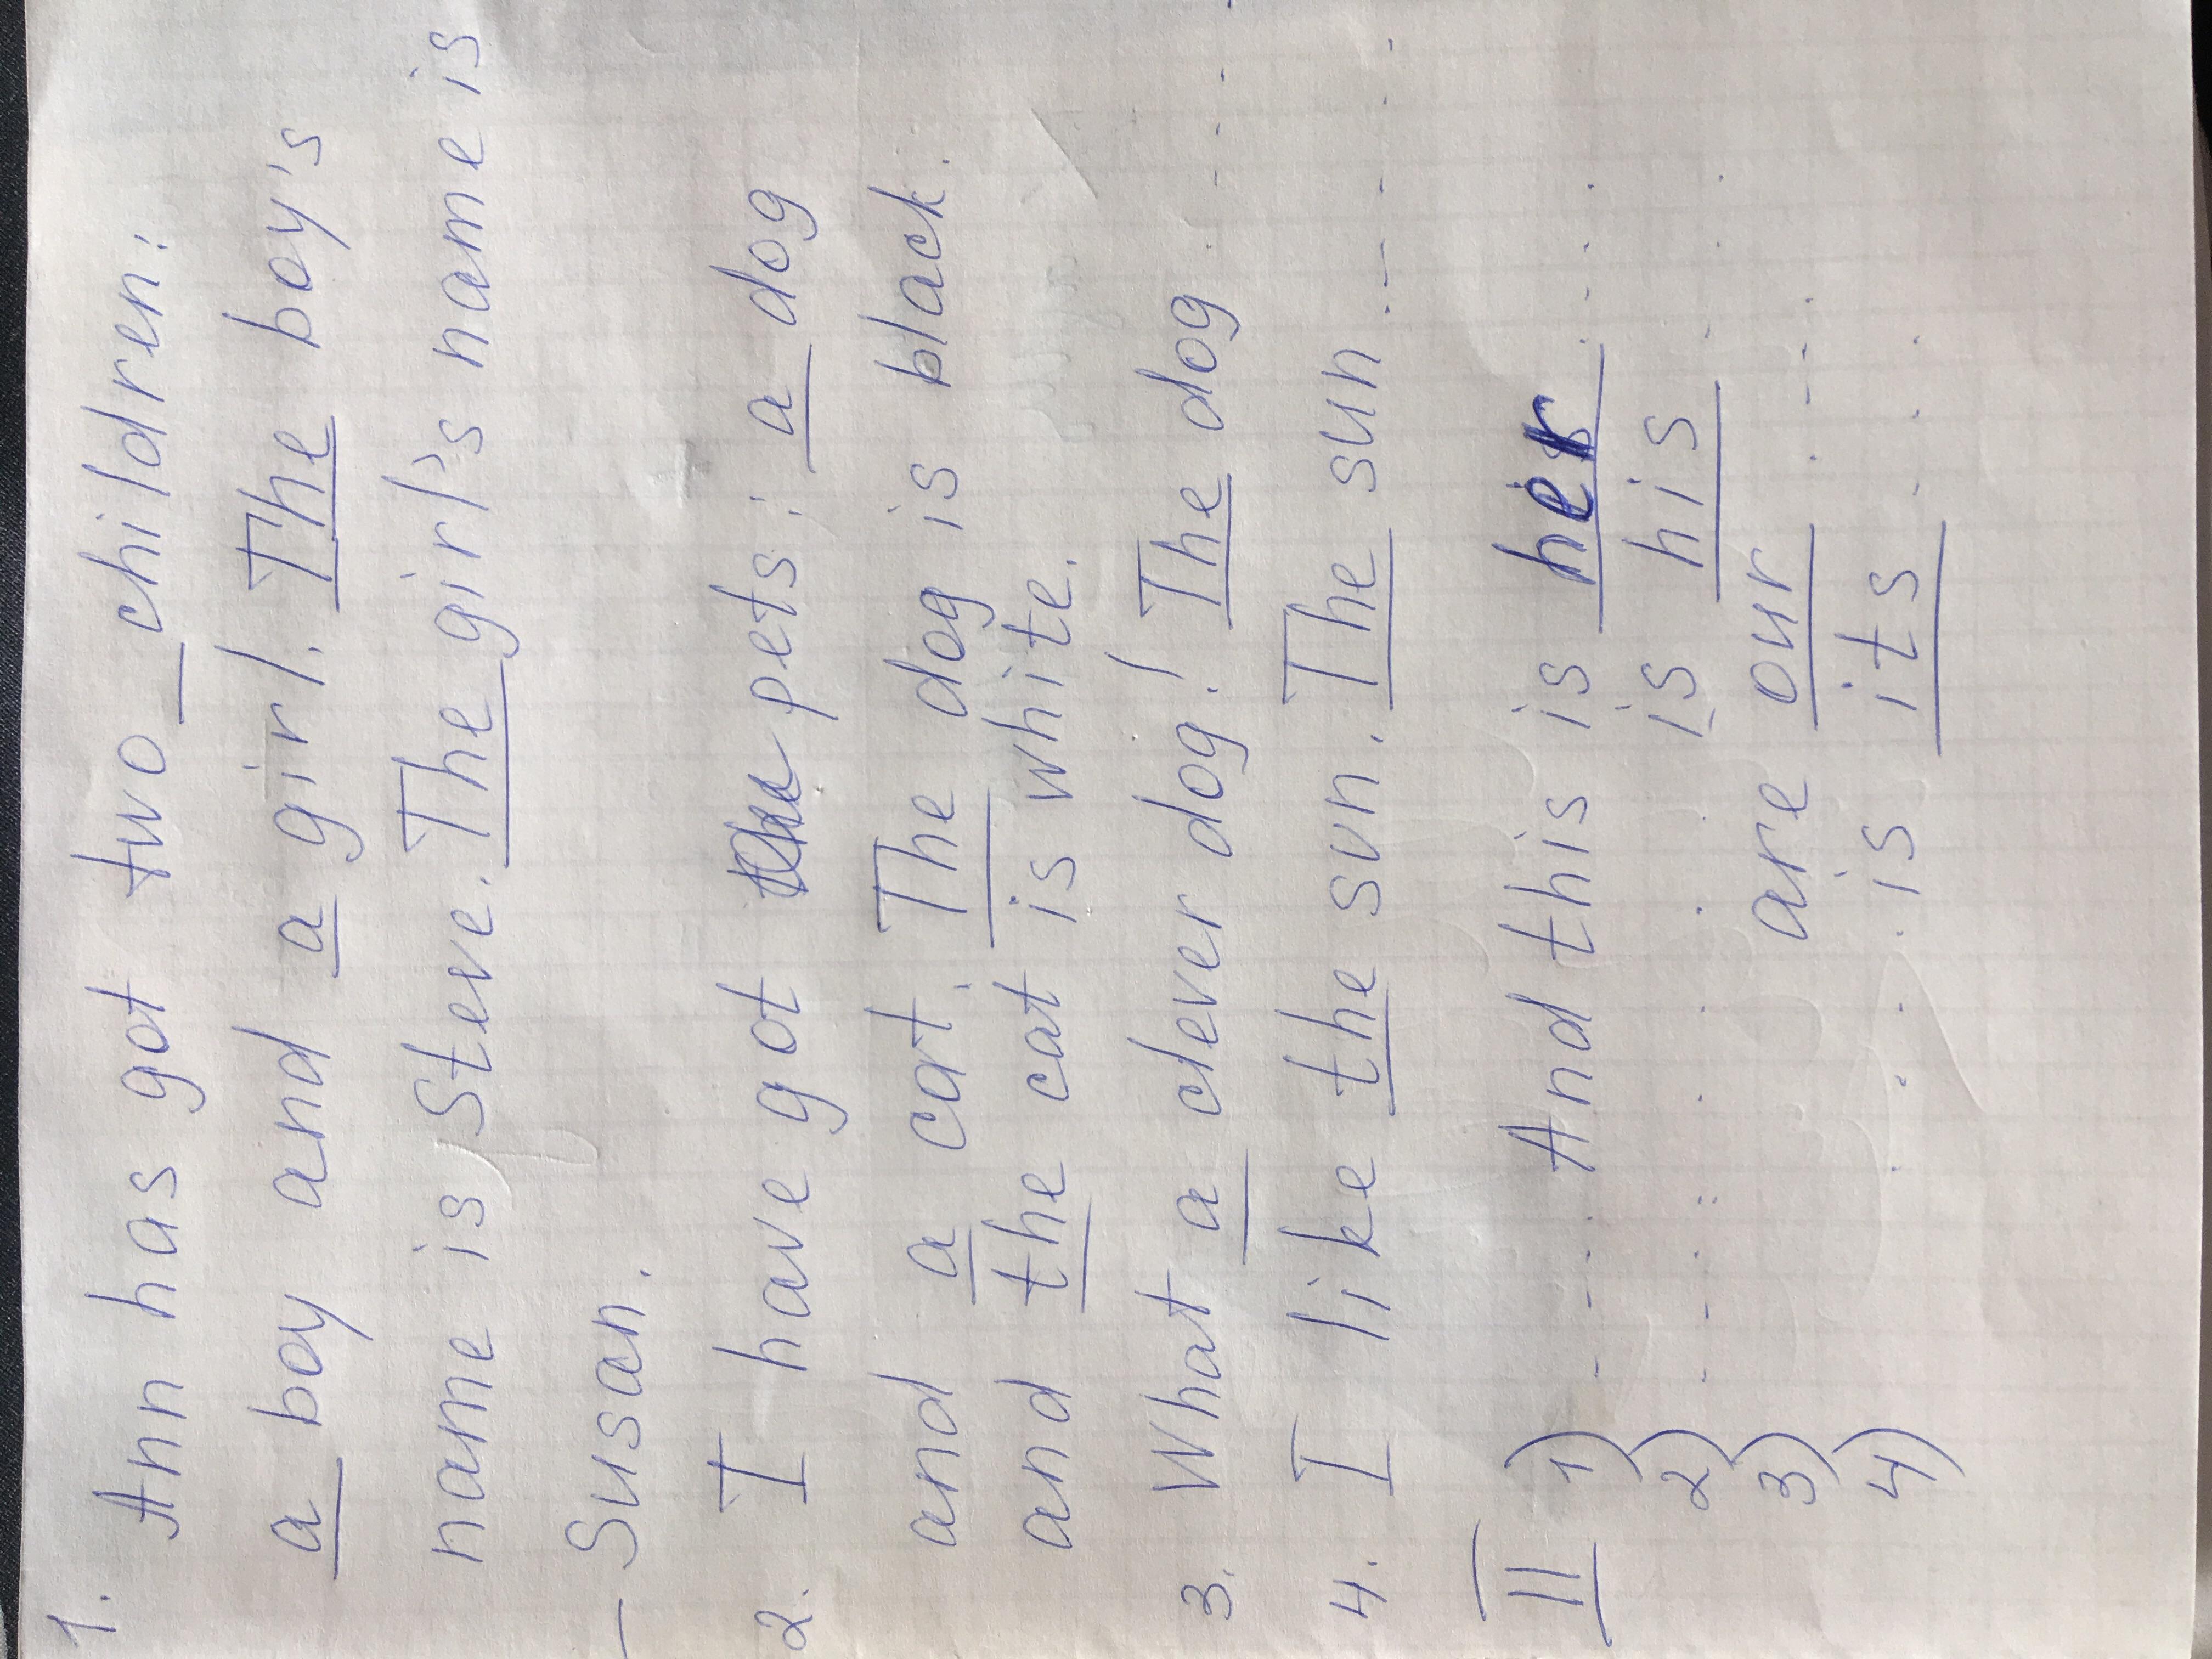 1. Ann has got two _ children:
a boy and a girl. The boy's
name is Steve. The girl's name is
_ Susan.
2. I have got pets: a dog
and a cat. The dog is black
and the cat is white.
3. What a clever dog! The dog ....
4. I like the sun. The sun .....
II 1) ..... And this is her ....
2) ....... is his ....
3) are our ....
4) ..... is its ....